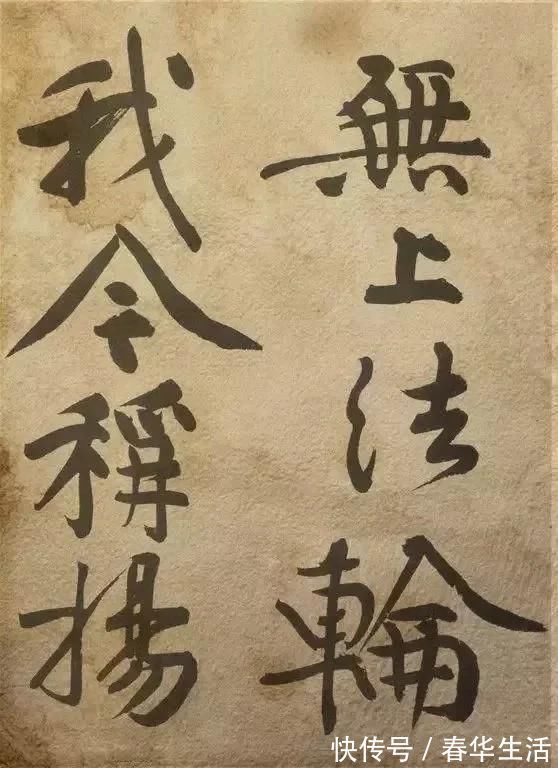 無上法輪
我今稱揚
快传号/春华生活